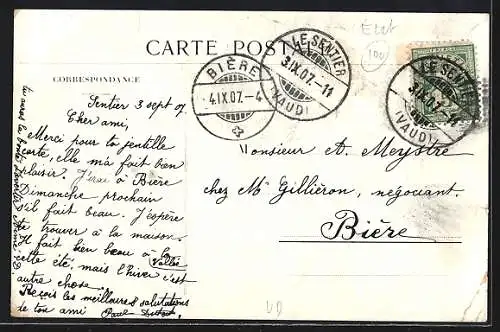 Etat
100
CARTE POSTALE
LE SENTIER
3.IX.07.-11
(VAUD)
LE SENTIER
3.IX.07.-11
(VAUD)
BIÈRE
4.IX.07.-4
CORRESPONDANCE
Sentier 3 sept 07
Cher ami,
Merci pour ta gentille
carte, elle m'a fait bien
plaisir. J'irai à Bière
Dimanche prochain
s'il fait beau. J'espère
te trouver à la maison.
Il fait bien beau à la
Vallée
cette été, mais l'hiver c'est
autre chose.
Reçois les meilleures salutations
de ton ami Paul
Monsieur A. Meystre
chez Mr Gilliéron, négociant.
Bière
VD